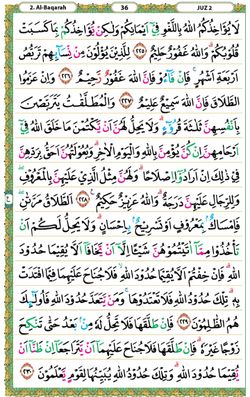 2. Al-Baqarah 36 JUZ 2
لَا يُؤَاخِذُكُمُ اللّٰهُ بِاللَّغْوِ فِيْٓ اَيْمَانِكُمْ وَلٰكِنْ يُّؤَاخِذُكُمْ بِمَا كَسَبَتْ
قُلُوْبُكُمْ ۗ وَاللّٰهُ غَفُوْرٌ حَلِيْمٌ ﴿٢٢٥﴾ لِلَّذِيْنَ يُؤْلُوْنَ مِنْ نِّسَآئِهِمْ تَرَبُّصُ
اَرْبَعَةِ اَشْهُرٍ ۚ فَاِنْ فَآءُوْ فَاِنَّ اللّٰهَ غَفُوْرٌ رَّحِيْمٌ ﴿٢٢٦﴾ وَاِنْ عَزَمُوا
الطَّلَاقَ فَاِنَّ اللّٰهَ سَمِيْعٌ عَلِيْمٌ ﴿٢٢٧﴾ وَالْمُطَلَّقٰتُ يَتَرَبَّصْنَ
بِاَنْفُسِهِنَّ ثَلٰثَةَ قُرُوْٓءٍ ۗ وَلَا يَحِلُّ لَهُنَّ اَنْ يَّكْتُمْنَ مَا خَلَقَ اللّٰهُ فِيْٓ
اَرْحَامِهِنَّ اِنْ كُنَّ يُؤْمِنَّ بِاللّٰهِ وَالْيَوْمِ الْاٰخِرِ ۗ وَبُعُوْلَتُهُنَّ اَحَقُّ بِرَدِّهِنَّ
فِيْ ذٰلِكَ اِنْ اَرَادُوْٓا اِصْلَاحًا ۗ وَلَهُنَّ مِثْلُ الَّذِيْ عَلَيْهِنَّ بِالْمَعْرُوْفِ ۖ
وَلِلرِّجَالِ عَلَيْهِنَّ دَرَجَةٌ ۗ وَاللّٰهُ عَزِيْزٌ حَكِيْمٌ ﴿٢٢٨﴾ اَلطَّلَاقُ مَرَّتٰنِ ۖ
فَاِمْسَاكٌۢ بِمَعْرُوْفٍ اَوْ تَسْرِيْحٌۢ بِاِحْسَانٍ ۗ وَلَا يَحِلُّ لَكُمْ اَنْ
تَأْخُذُوْا مِمَّآ اٰتَيْتُمُوْهُنَّ شَيْـًٔا اِلَّآ اَنْ يَّخَافَآ اَلَّا يُقِيْمَا حُدُوْدَ
اللّٰهِ ۗ فَاِنْ خِفْتُمْ اَلَّا يُقِيْمَا حُدُوْدَ اللّٰهِ ۙ فَلَا جُنَاحَ عَلَيْهِمَا فِيْمَا افْتَدَتْ
بِهٖ ۗ تِلْكَ حُدُوْدُ اللّٰهِ فَلَا تَعْتَدُوْهَا ۚ وَمَنْ يَّتَعَدَّ حُدُوْدَ اللّٰهِ فَاُولٰٓئِكَ
هُمُ الظّٰلِمُوْنَ ﴿٢٢٩﴾ فَاِنْ طَلَّقَهَا فَلَا تَحِلُّ لَهٗ مِنْۢ بَعْدُ حَتّٰى تَنْكِحَ
زَوْجًا غَيْرَهٗ ۗ فَاِنْ طَلَّقَهَا فَلَا جُنَاحَ عَلَيْهِمَآ اَنْ يَّتَرَاجَعَآ اِنْ ظَنَّآ اَنْ
يُّقِيْمَا حُدُوْدَ اللّٰهِ ۗ وَتِلْكَ حُدُوْدُ اللّٰهِ يُبَيِّنُهَا لِقَوْمٍ يَّعْلَمُوْنَ ﴿٢٣٠﴾